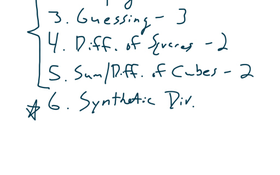 3. Guessing - 3
4. Diff. of Squares - 2
5. Sum/Diff. of Cubes - 2
☆ 6. Synthetic Div.